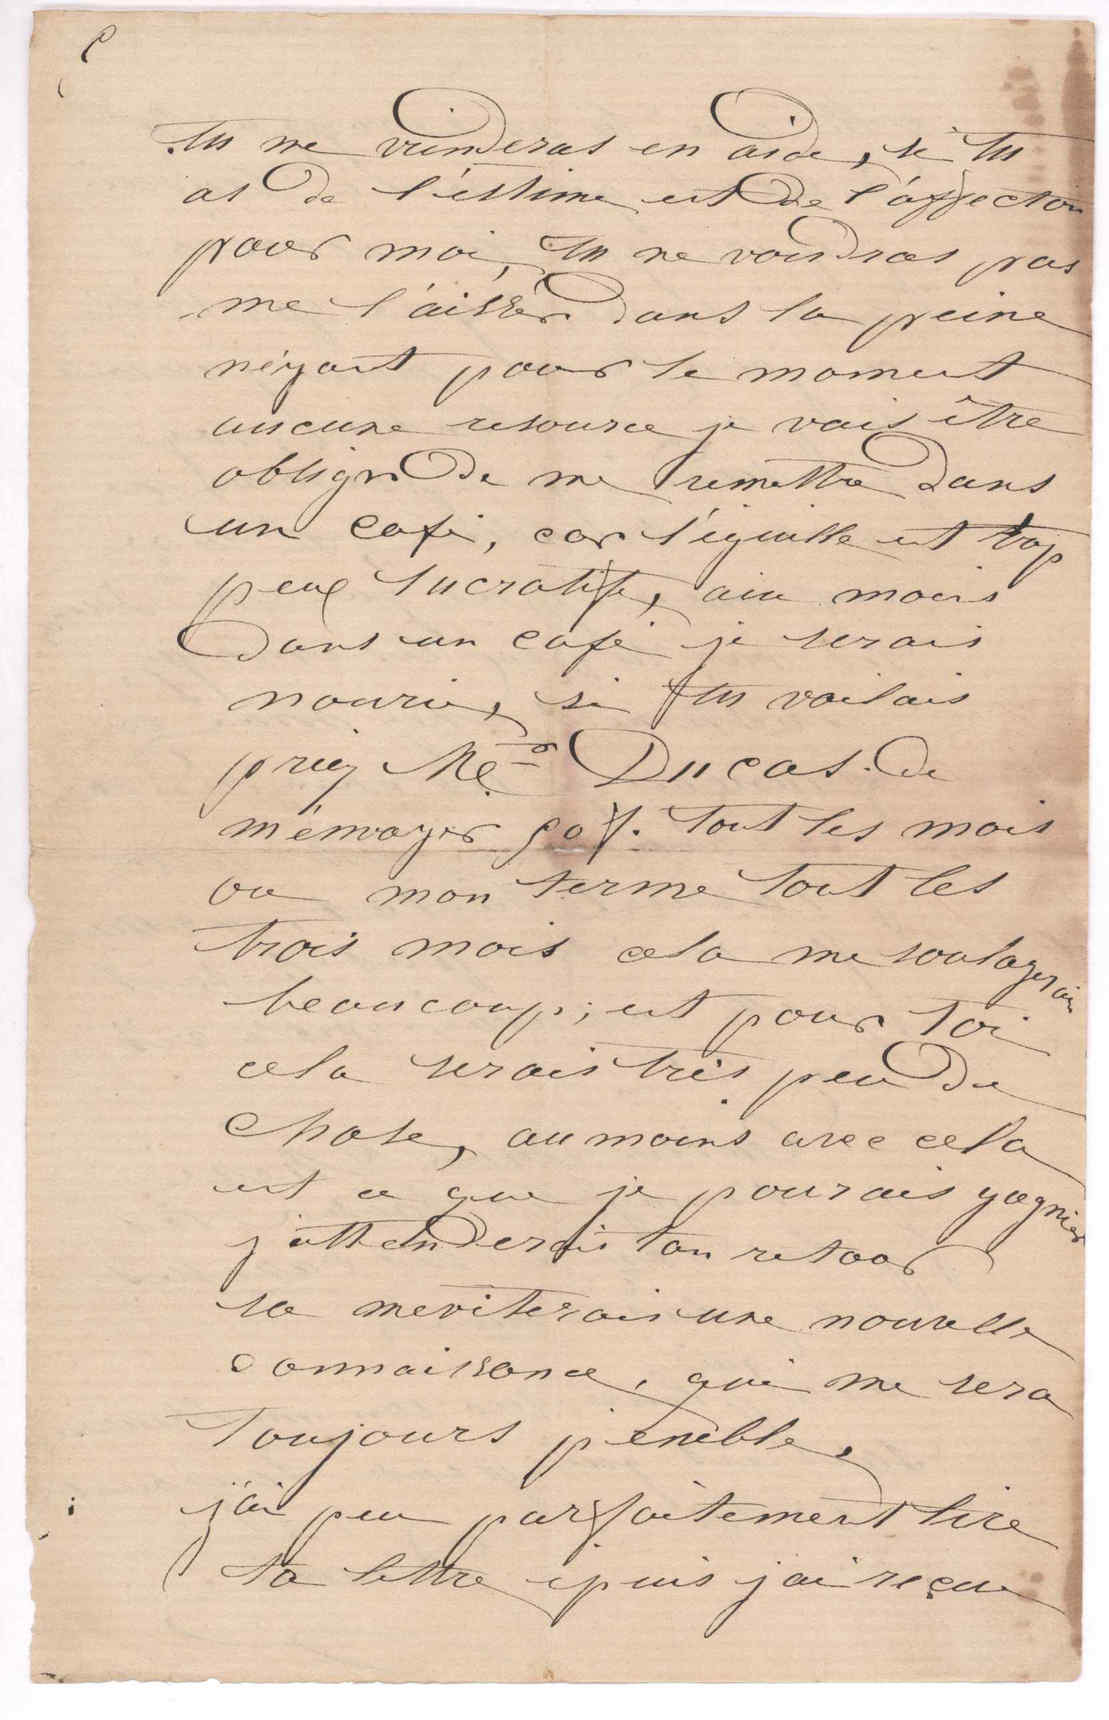 tu me vienderas en aide, si tu
as de l'estime est de l'affecton
pour moi, tu ne voudras pas
me l'aisser dans la peine
n'éyant pour le moment
aucune resource je vais être
obligé de me remettre dans
un café, car l'éguille est trop
peux lucratife, aux moins
dans un café je serais
nourie, si tu voulais
priez Me^r Ducas. de
m'émvoyer 50f. tout les mois
ou mon terme tout les
trois mois cela me soulagerais
beaucoup; est pour toi
cela serais très peu de
chose, au moins avec cela
est ce que je pourais gagnier
j'attenderais ton retoor
sa meviterais une nouvelle
connaissance, qui me sera
toujours penible.
j'ai peu parfaitement lire
ta lettre ipuis jai reçue